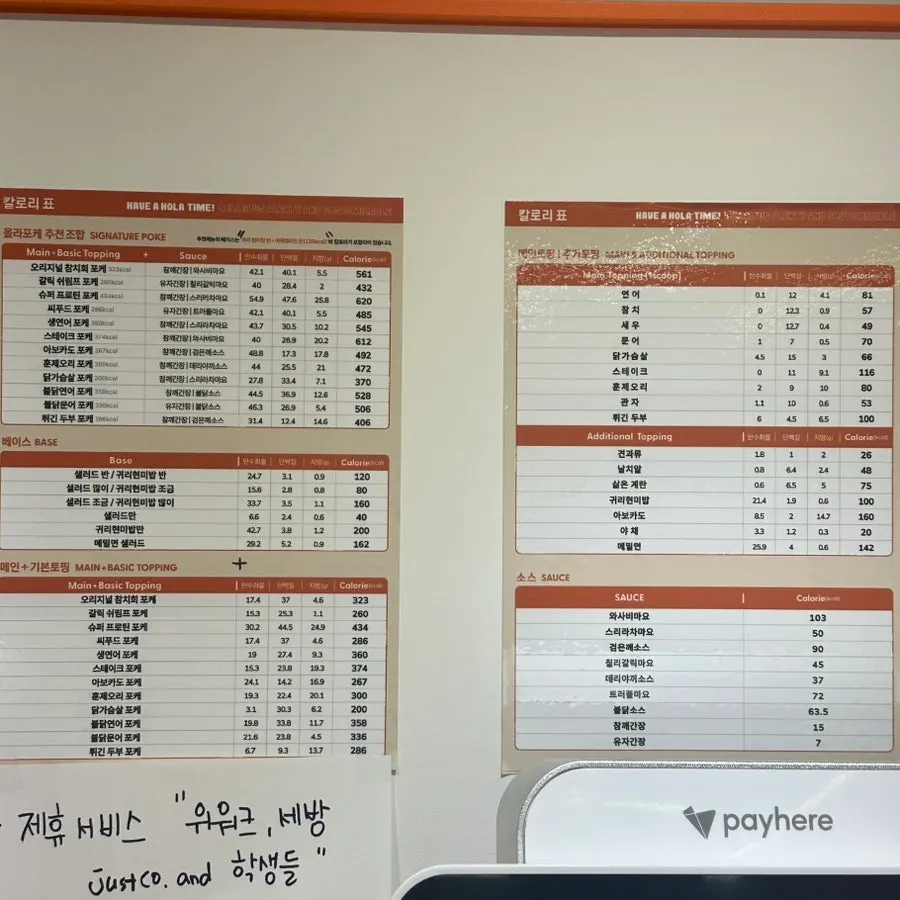 칼로리 표 HAVE A HOLA TIME!
올라포케 추천 조합 SIGNATURE POKE
Main+Basic Topping + Sauce 탄수화물 단백질 지방(g) Calorie(kcal)
오리지널 참치회 포케 323kcal 참깨간장 | 와사비마요 42.1 40.1 5.5 561
갈릭 쉬림프 포케 260kcal 유자간장 | 칠리갈릭마요 40 28.4 2 432
슈퍼 프로틴 포케 434kcal 참깨간장 | 스리라차마요 54.9 47.6 25.8 620
씨푸드 포케 286kcal 유자간장 | 트러플마요 42.1 40.1 5.5 485
생연어 포케 360kcal 참깨간장 | 스리라차마요 43.7 30.5 10.2 545
스테이크 포케 374kcal 참깨간장 | 와사비마요 40 26.9 20.2 612
아보카도 포케 267kcal 참깨간장 | 검은깨소스 48.8 17.3 17.8 492
훈제오리 포케 300kcal 참깨간장 | 데리야끼소스 44 25.5 21 472
닭가슴살 포케 200kcal 참깨간장 | 스리라차마요 27.8 33.4 7.1 370
불닭연어 포케 358kcal 참깨간장 | 불닭소스 44.5 36.9 12.6 528
불닭문어 포케 336kcal 유자간장 | 불닭소스 46.3 26.9 5.4 506
튀긴 두부 포케 286kcal 참깨간장 | 검은깨소스 31.4 12.4 14.6 406
베이스 BASE
Base 탄수화물 단백질 지방(g) Calorie(kcal)
샐러드 반 / 귀리현미밥 반 24.7 3.1 0.9 120
샐러드 많이 / 귀리현미밥 조금 15.6 2.8 0.8 80
샐러드 조금 / 귀리현미밥 많이 33.7 3.5 1.1 160
샐러드만 6.6 2.4 0.6 40
귀리현미밥만 42.7 3.8 1.2 200
메밀면 샐러드 29.2 5.2 0.9 162
메인+기본토핑 MAIN+BASIC TOPPING +
Main+Basic Topping 탄수화물 단백질 지방(g) Calorie(kcal)
오리지널 참치회 포케 17.4 37 4.6 323
갈릭 쉬림프 포케 15.3 25.3 1.1 260
슈퍼 프로틴 포케 30.2 44.5 24.9 434
씨푸드 포케 17.4 37 4.6 286
생연어 포케 19 27.4 9.3 360
스테이크 포케 15.3 23.8 19.3 374
아보카도 포케 24.1 14.2 16.9 267
훈제오리 포케 19.3 22.4 20.1 300
닭가슴살 포케 3.1 30.3 6.2 200
불닭연어 포케 19.8 33.8 11.7 358
불닭문어 포케 21.6 23.8 4.5 336
튀긴 두부 포케 6.7 9.3 13.7 286
제휴서비스 "위워크, 세방
JustCo. and 학생들"
칼로리 표 HAVE A HOLA TIME!
메인토핑 | 추가토핑 MAIN & ADDITIONAL TOPPING
Main Topping (1scoop) 탄수화물 단백질 지방(g) Calorie(kcal)
연어 0.1 12 4.1 81
참치 0 12.3 0.9 57
새우 0 12.7 0.4 49
문어 1 7 0.5 70
닭가슴살 4.5 15 3 66
스테이크 0 11 9.1 116
훈제오리 2 9 10 80
관자 1.1 10 0.6 53
튀긴 두부 6 4.5 6.5 100
Additional Topping 탄수화물 단백질 지방(g) Calorie(kcal)
견과류 1.8 1 2 26
날치알 0.8 6.4 2.4 48
삶은 계란 0.6 6.5 5 75
귀리현미밥 21.4 1.9 0.6 100
아보카도 8.5 2 14.7 160
야채 3.3 1.2 0.3 20
메밀면 25.9 4 0.6 142
소스 SAUCE
SAUCE Calorie(kcal)
와사비마요 103
스리라차마요 50
검은깨소스 90
칠리갈릭마요 45
데리야끼소스 37
트러플마요 72
불닭소스 63.5
참깨간장 15
유자간장 7
payhere